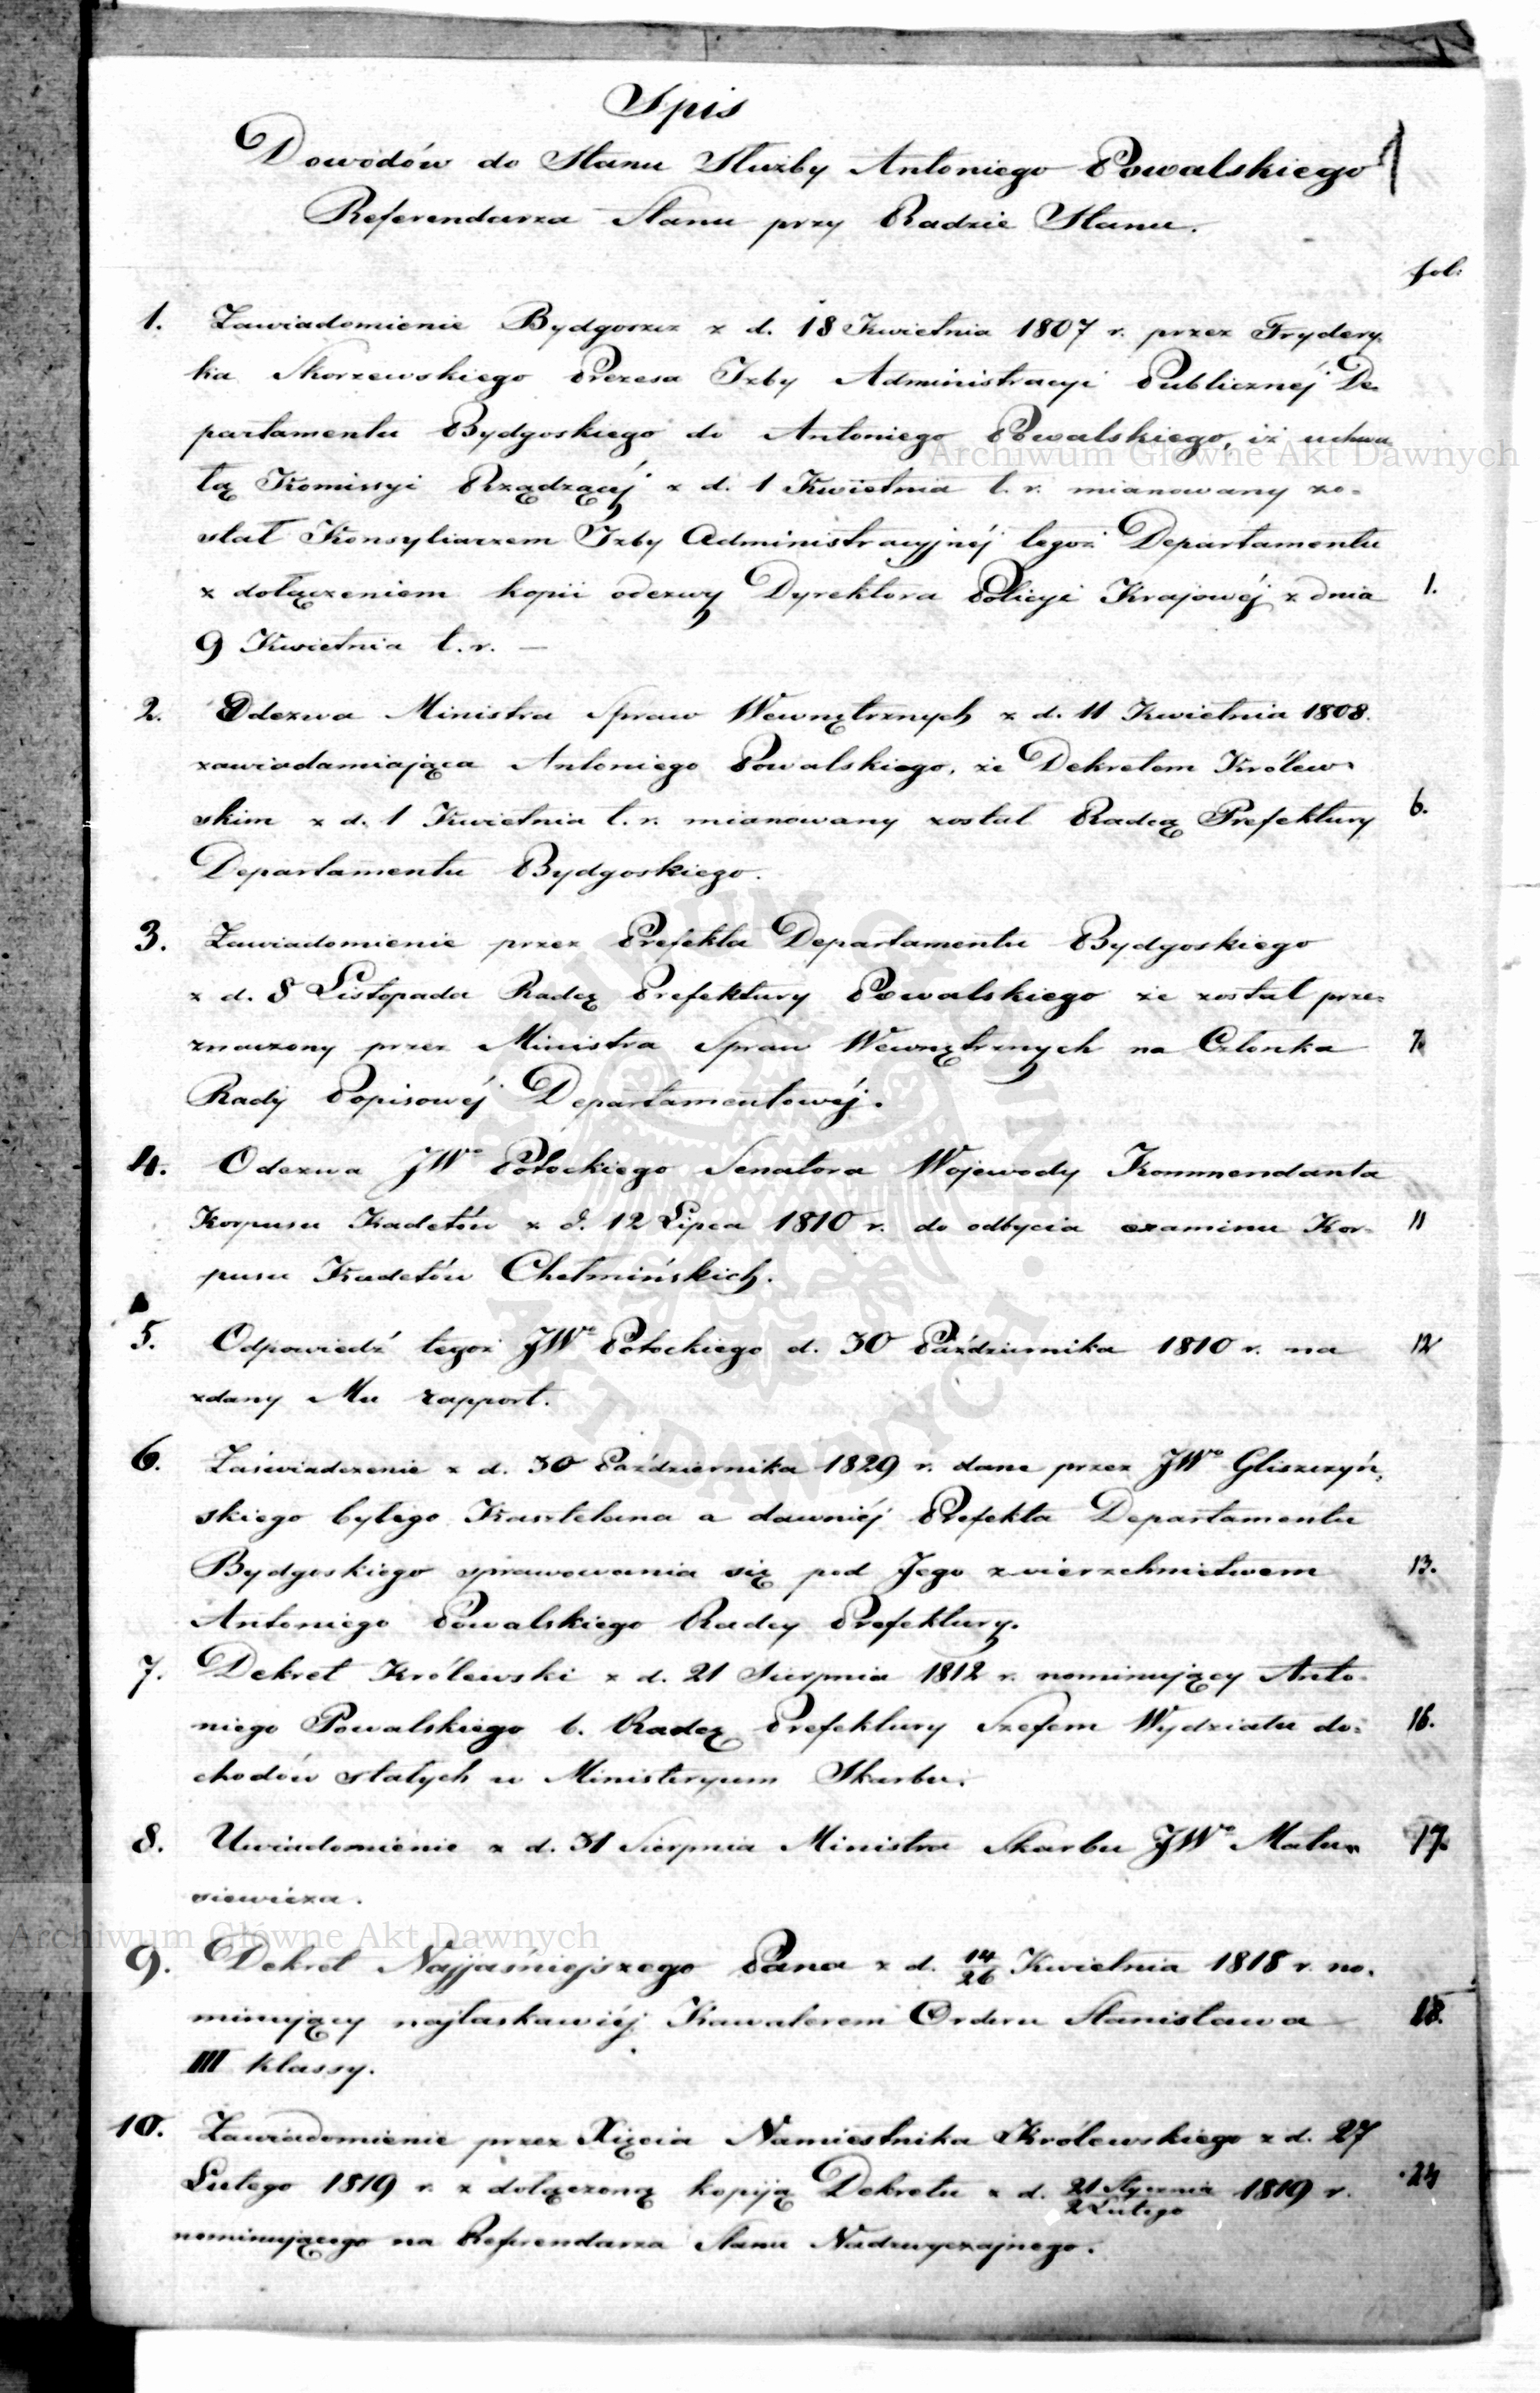 Spis
Dowodów do Stanu Służby Antoniego Powalskiego
Referendarza Stanu przy Radzie Stanu.
fol:
1. Zawiadomienie Bydgoszcz z d. 18 Kwietnia 1807 r. przez Frydery-
ka Skorzewskiego Prezesa Izby Administracyi Publicznéj De-
partamentu Bydgoskiego do Antoniego Powalskiego, iż uchwa-
łą Komissyi Rządzącéj z d. 1 Kwietnia t. r. mianowany zo-
stał Konsyliarzem Izby Administracyjnéj tegoż Departamentu
z dołączeniem kopii odezwy Dyrektora Policyi Krajowéj z dnia 1.
9 Kwietnia t. r. —
2. Odezwa Ministra Spraw Wewnętrznych z d. 11 Kwietnia 1808.
zawiadamiająca Antoniego Powalskiego, że Dekretem Królew-
skim z d. 1 Kwietnia t. r. mianowany został Radcą Prefektury 6.
Departamentu Bydgoskiego.
3. Zawiadomienie przez Prefekta Departamentu Bydgoskiego
z d. 8 Listopada Radcę Prefektury Powalskiego że został prze-
znaczony przez Ministra Spraw Wewnętrznych na Członka 7.
Rady Popisowéj Departamentowéj.
4. Odezwa JWo Potockiego Senatora Wojewody Kommendanta
Korpusu Kadetów z d. 12 Lipca 1810 r. do odbycia examinu Kor- 11
pusu Kadetów Chełmińskich.
5. Odpowiedź tegoż JWo Potockiego d. 30 Października 1810 r. na 12
zdany Mu rapport.
6. Zaświadczenie z d. 30 Października 1829 r. dane przez JWo Gliszczyń-
skiego byłego Kasztelana a dawniéj Prefekta Departamentu
Bydgoskiego sprawowania się pod Jego zwierzchnictwem 13.
Antoniego Powalskiego Radcy Prefektury.
7. Dekret Królewski z d. 21 Sierpnia 1812 r. nominujący Anto-
niego Powalskiego b. Radcę Prefektury Szefem Wydziału do- 16.
chodów stałych w Ministeryum Skarbu.
8. Uwiadomienie z d. 31 Sierpnia Ministra Skarbu JWo Matu- 17.
siewicza.
9. Dekret Najjaśniejszego Pana z d. 14/26 Kwietnia 1818 r. no-
minujący najłaskawiéj Kawalerem Orderu Stanisława 18.
III klassy.
10. Zawiadomienie przez Xięcia Namiestnika Królewskiego z d. 27
Lutego 1819 r. z dołączoną kopiją Dekretu z d. 21 Stycznia/2 Lutego 1819 r.
nominującego na Referendarza Stanu Nadzwyczajnego.
Archiwum Główne Akt Dawnych
Archiwum Główne Akt Dawnych